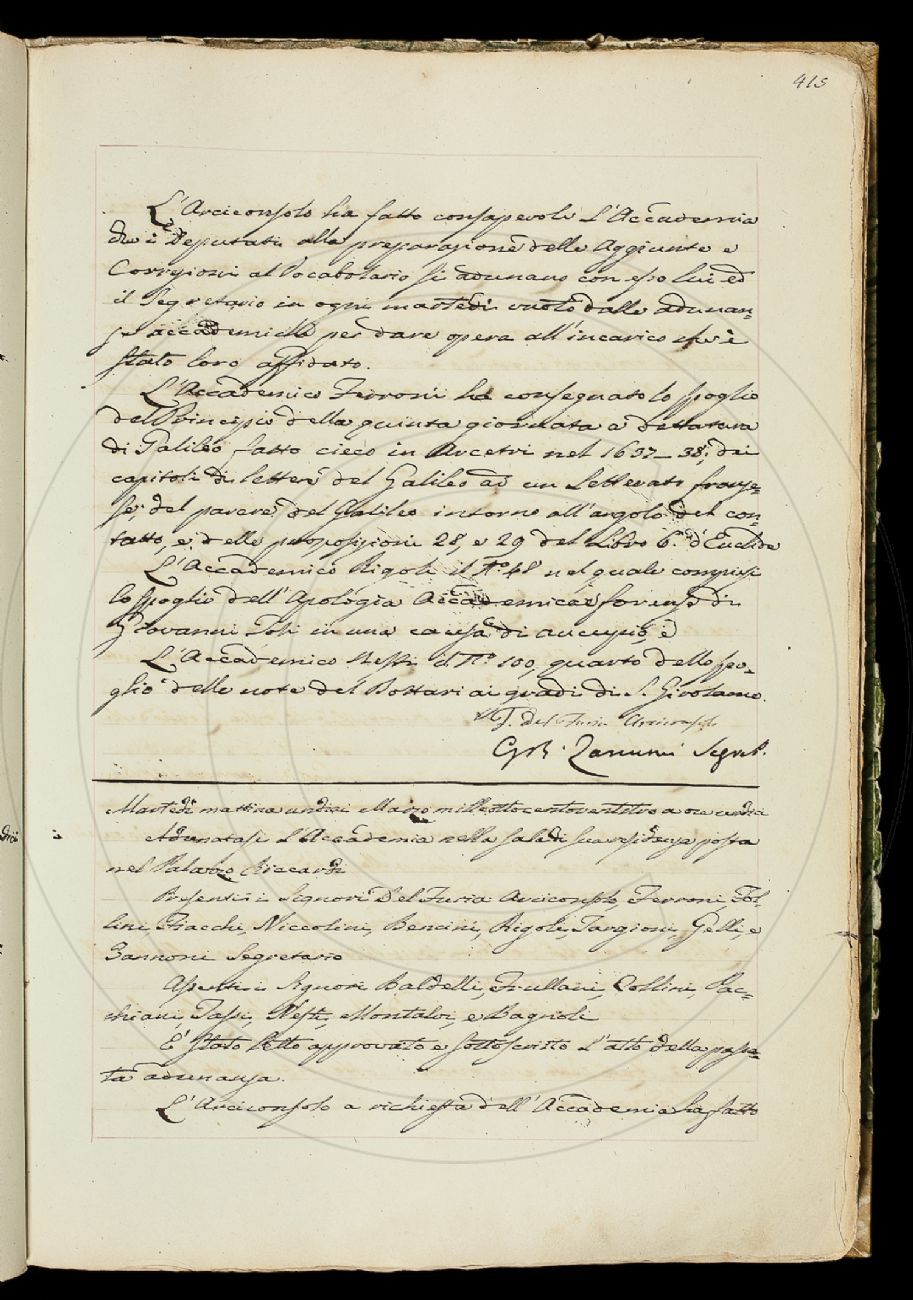 415
L'Arciconsolo ha fatto consapevole L'Accademia
che i Deputati alla preparazione delle Aggiunte e
Correzioni al Vocabolario si adunano con esso lui ed
il Segretario in ogni martedì vuoto dalle adunan=
ze accademiche per dare opera all'incarico che è
stato loro affidato.
L'Accademico Ferroni ha consegnato lo spoglio
del Principio della quinta giornata a dettatura
di Galileo fatto cieco in Arcetri nel 1637–38; dei
capitoli di lettere del Galileo ad un Letterato franze=
se; del parere del Galileo intorno all'angolo del con=
tatto, e delle proposizioni 28, e 29 del Libro 6.° d'Euclide
L'Accademico Rigoli il N.° 48 nel quale compiesi
lo spoglio dell'Apologia Accademica e forense di
Giovanni Poli in una causa di
L'Accademico Nesti il N.° 100, quarto dello spo=
glio delle note del Bottari ai gradi di S. Girolamo.
F. Del Furia Arciconsolo
GB. Zannoni Segret.
Martedì mattina undici Marzo milleottocentoventitre a ore undici
Adunatasi L'Accademia nella sala di sua residenza posta
nel Palazzo Riccardi
Presenti i Signori Del Furia Arciconsolo, Ferroni, Fol=
lini, Fiacchi, Niccolini, Bencini, Rigoli, Targioni, Gelli, e
Zannoni Segretario
Assenti i Signori Baldelli, Frullani, Collini, Pac=
chiani, Tassi, Nesti, Montalvi, e Bagnoli
E' stato letto approvato e sottoscritto L'atto della passa=
ta adunanza.
L'Arciconsolo a richiesta dell'Accademia ha fatto